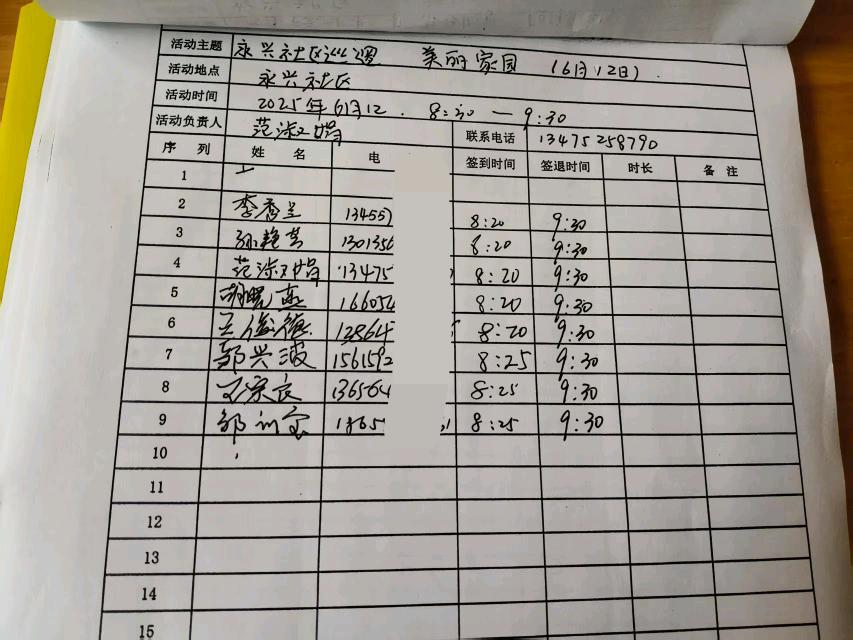 活动主题 永兴社区巡逻 美丽家园 (6月12日).
活动地点 永兴社区
活动时间 2025年6月12. 8:30 — 9:30
活动负责人 范淑娟 联系电话 13475258790
序列 姓名 电 签到时间 签退时间 时长 备注
1
2 李秀兰 134557 8:20 9:30
3 孙艳芳 1301356 8:20 9:30
4 范淑娟 13475 8:20 9:30
5 胡晓燕 166054 8:20 9:30
6 王俊德 13864 8:20 9:30
7 邹兴波 1561592 8:25 9:30
8 136564 8:25 9:30
9 邹训宝 1865 8:25 9:30
10
11
12
13
14
15